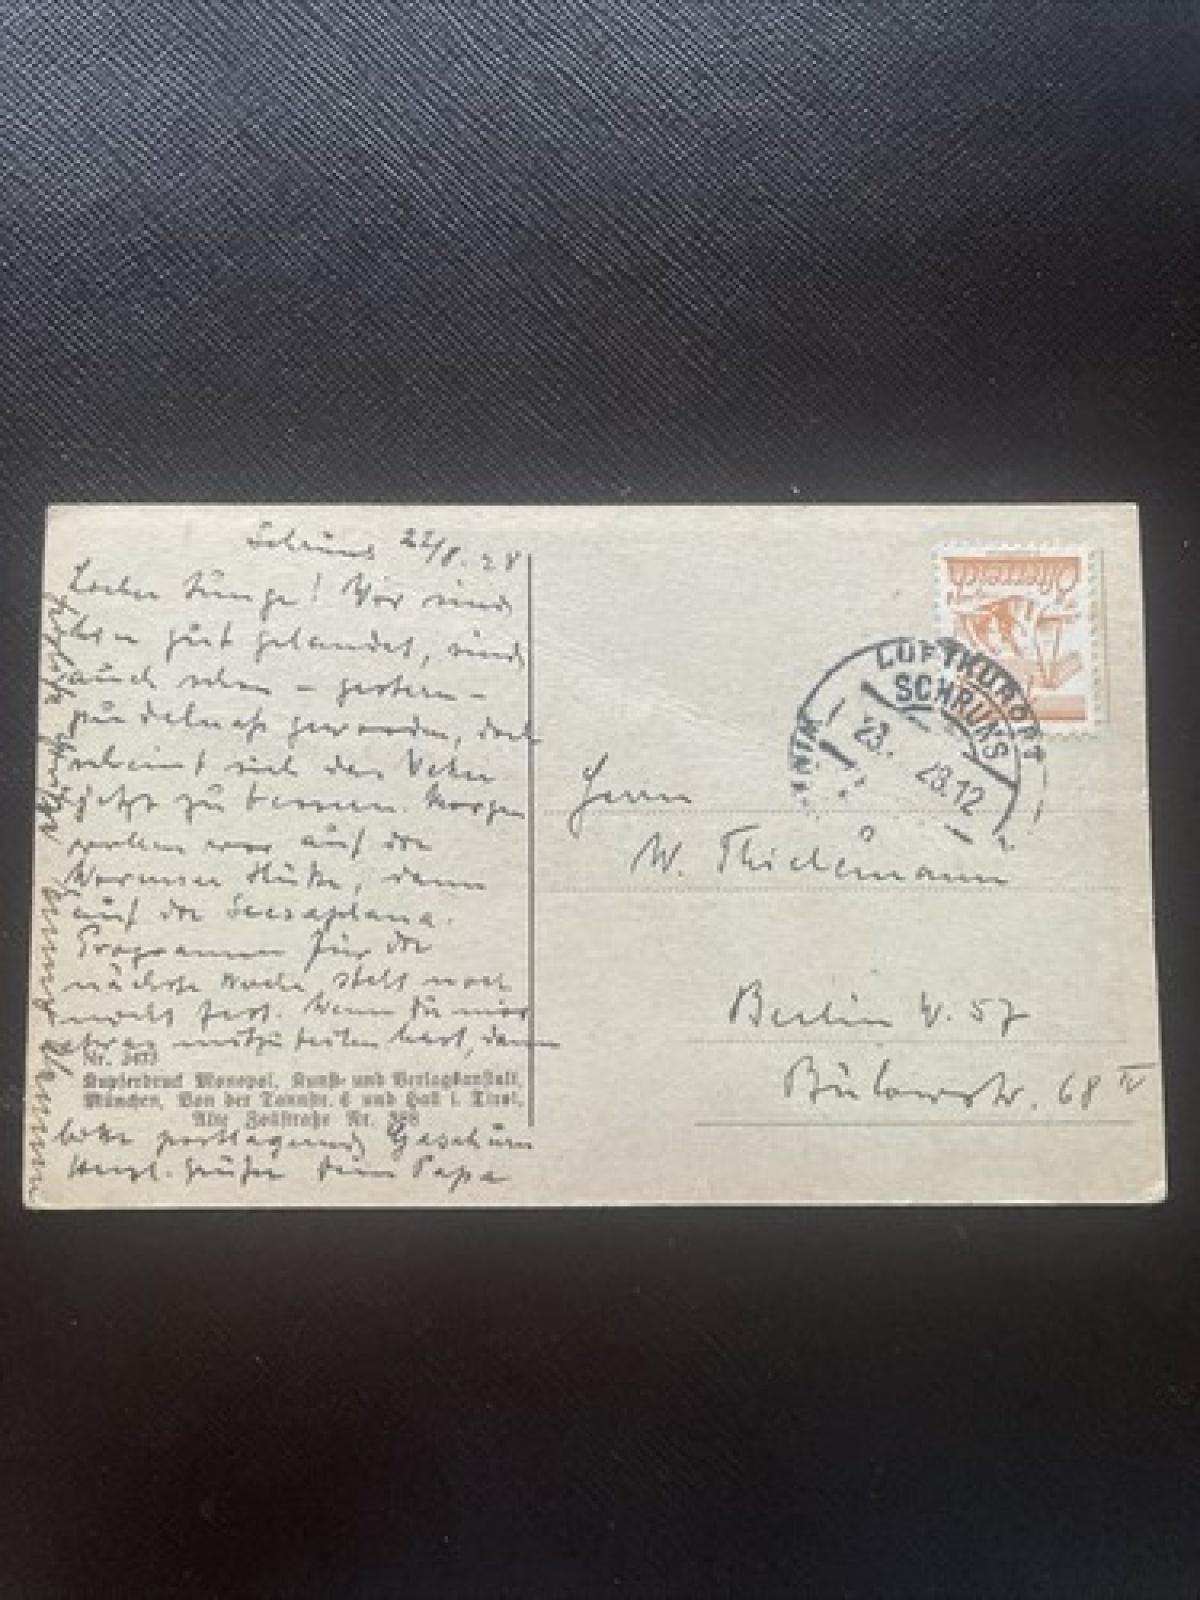 Schruns 22/8. 28
Lieber Junge! Wir sind
gut gelandet, sind
auch schon - gestern -
pudelnaß geworden, doch
scheint sich das Wetter
jetzt zu bessern. Morgen
wollen wir auf die
Wormser Hütte, dann
auf die Scesaplana.
Programm für die
nächste Woche steht noch
nicht fest. Wenn Du mir
etwas mitzuteilen hast, dann
Nr. 3473
Kupferdruck Monopol, Kunst- und Verlagsanstalt,
München, Von der Tannstr. 6 und Hall i. Tirol,
Alte Zollstraße Nr. 388
bitte postlagernd Gaschurn
Herzl. Grüße Dein Papa
Österreich
LUFTKURORT
SCHRUNS
23. 28.12
Herrn
W. Thielemann
Berlin W. 57
Bülowstr. 68 IV